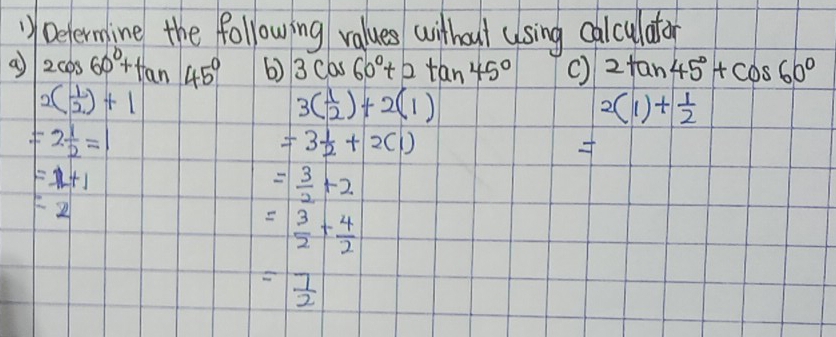 1) Determine the following values without using calculator
a) 2cos 60° + tan 45°
2(1/2) + 1
= 2 1/2 = 1
= 1+1
= 2
b) 3 Cos 60° + 2 tan 45°
3(1/2) + 2(1)
= 3 1/2 + 2(1)
= 3/2 + 2
= 3/2 + 4/2
= 7/2
c) 2 tan 45° + cos 60°
2(1) + 1/2
=